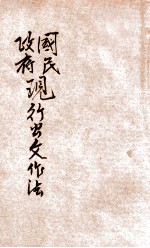 國民政府現行公文作法